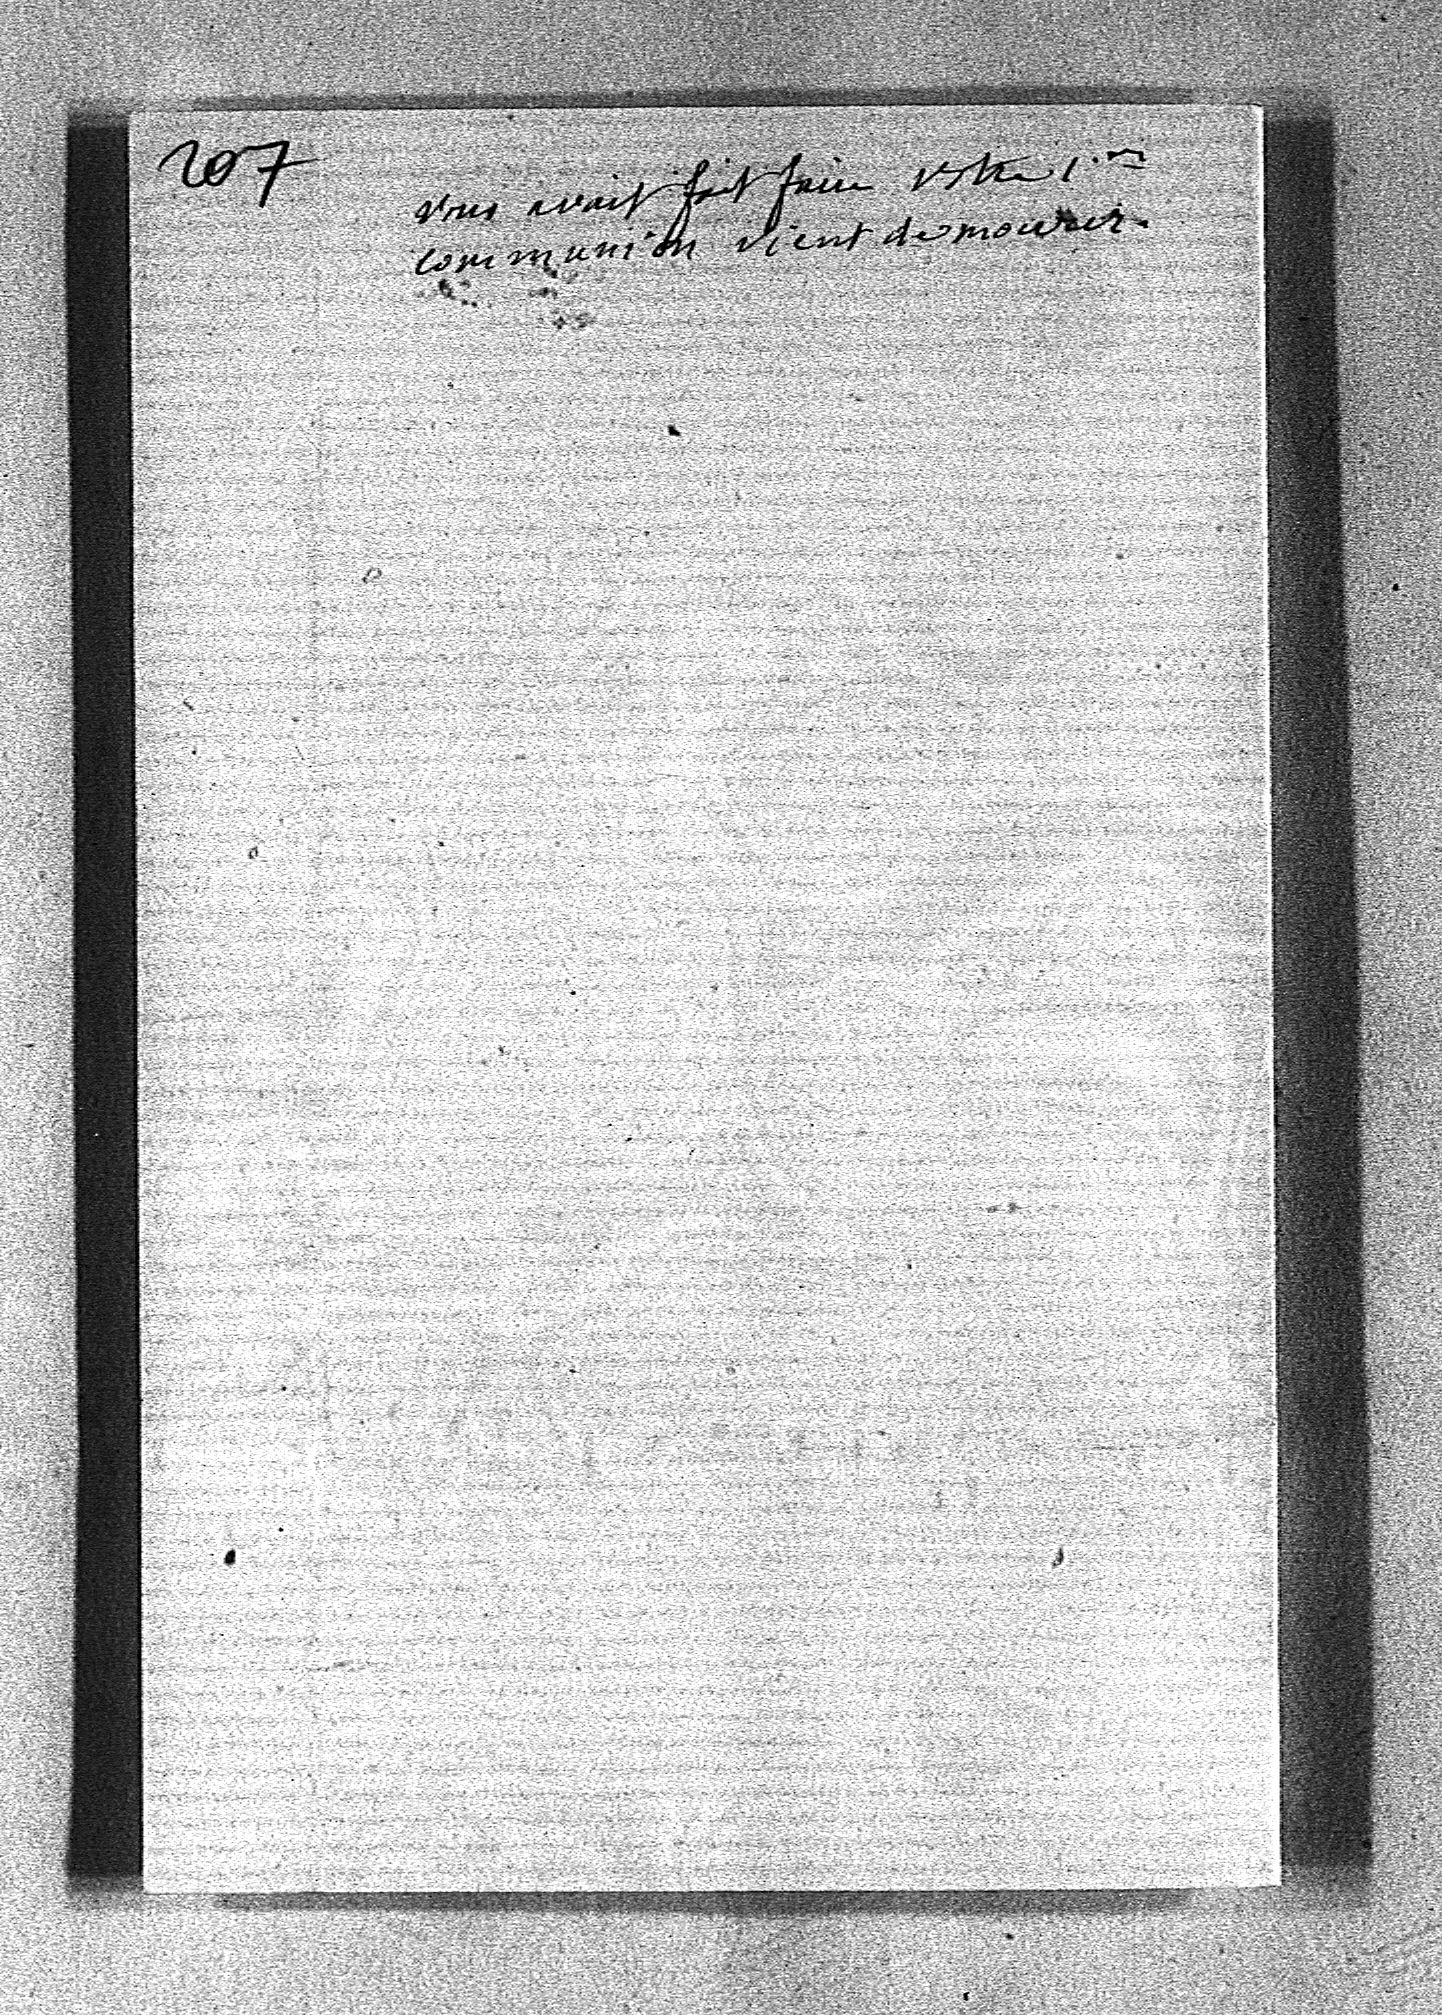 207
vous avait fait faire votre 1.re
communion vient de mourir.